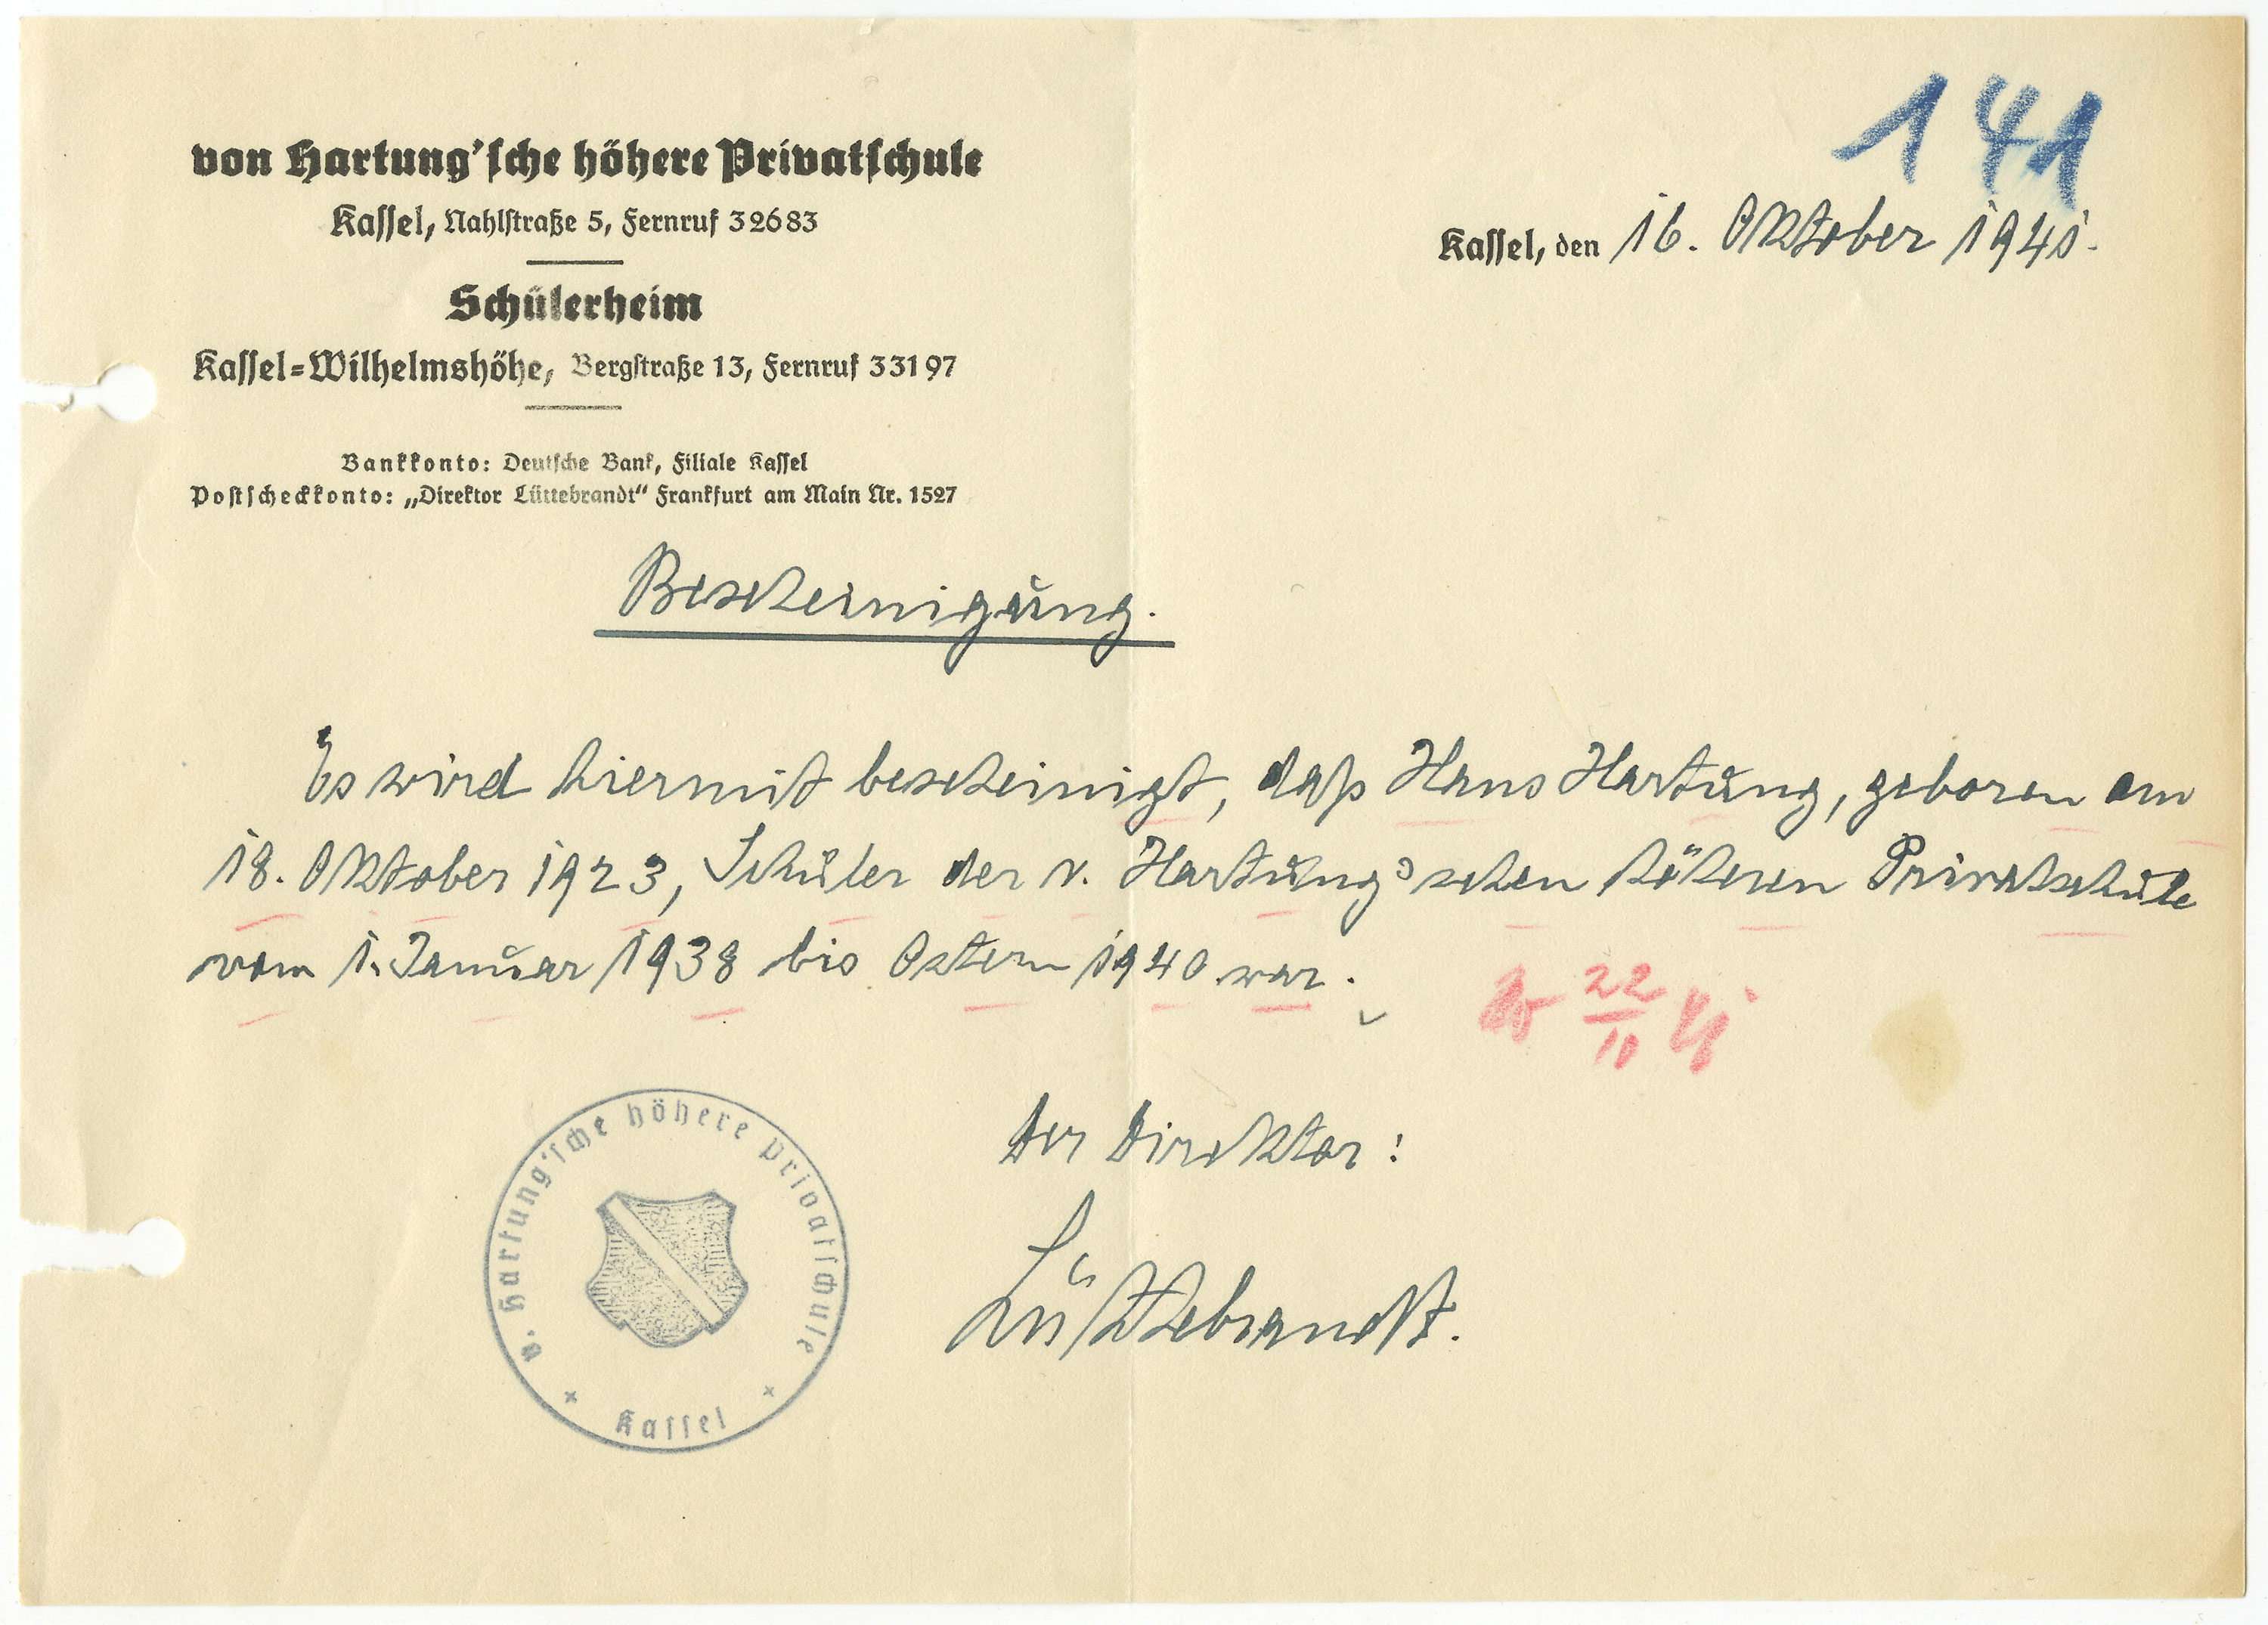 141
von Hartung'sche höhere Privatschule
Kassel, Nahlstraße 5, Fernruf 32683
Kassel, den 16. Oktober 1941.
Schülerheim
Kassel-Wilhelmshöhe, Bergstraße 13, Fernruf 33197
Bankkonto: Deutsche Bank, Filiale Kassel
Postscheckkonto: „Direktor Lüttebrandt“ Frankfurt am Main Nr. 1527
Bescheinigung.
Es wird hiermit bescheinigt, daß Hans Hartung, geboren am
18. Oktober 1923, Schüler der v. Hartung'schen höheren Privatschule
vom 1. Januar 1938 bis Ostern 1940 war.
22/10 41
Der Direktor:
Lüttebrandt.
v. Hartung'sche höhere Privatschule
+ Kassel +